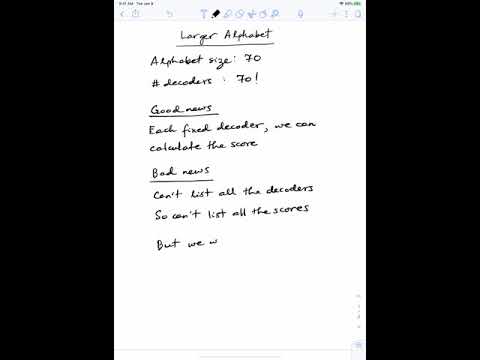 9:41 AM Tue Jan 9
Larger Alphabet
Alphabet size: 70
# decoders : 70!
Good news
Each fixed decoder, we can
calculate the score
Bad news
Can't list all the decoders
So can't list all the scores
But we w